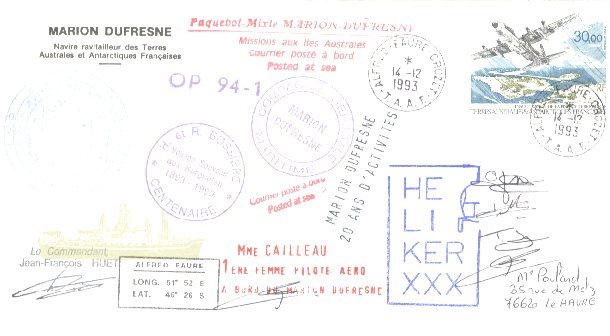 MARION DUFRESNE
Navire ravitailleur des Terres
Australes et Antarctiques Françaises
Paquebot-Mixte MARION-DUFRESNE
Missions aux Iles Australes
Courrier posté à bord
Posted at sea
OP 94-1
ALFRED-FAURE CROZET
14-12
1993
T.A.A.F.
30,00
TERRES AUSTRALES ET ANTARCTIQUES FRANÇAISES
14-12
1993
T.A.A.F.
MARION
DUFRESNE
MARITIME
et R. BOSSIERE
aux Kerguelen
1893 - 1993
CENTENAIRE
Courrier posté à bord
Posted at sea
MARION DUFRESNE
20 ANS D'ACTIVITES
HE
LI
KER
XXX
Le Commandant,
Jean-François HUET
ALFRED FAURE
LONG. 51° 52 E
LAT. 46° 26 S
MME CAILLEAU
1ERE FEMME PILOTE AERO
A BORD DU MARION DUFRESNE
35 rue de Metz
76620 LE HAVRE